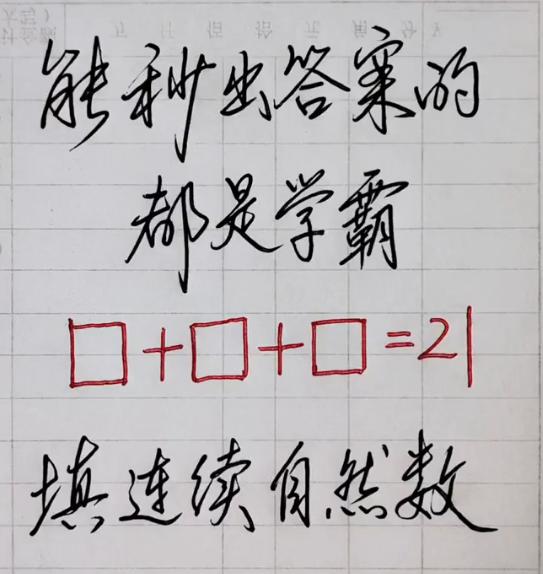 能秒出答案的
都是学霸
□+□+□=21
填连续自然数